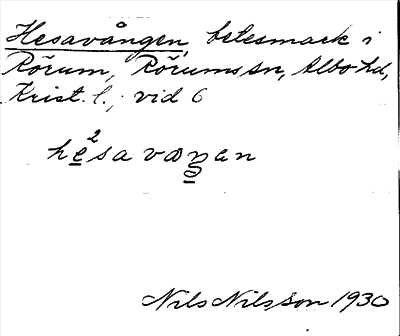 Hesavången, betesmark i
Rörum, Rörums sn, Albo hd,
Krist. l., vid 6
he²sa vaŋan
Nils Nilsson 1930